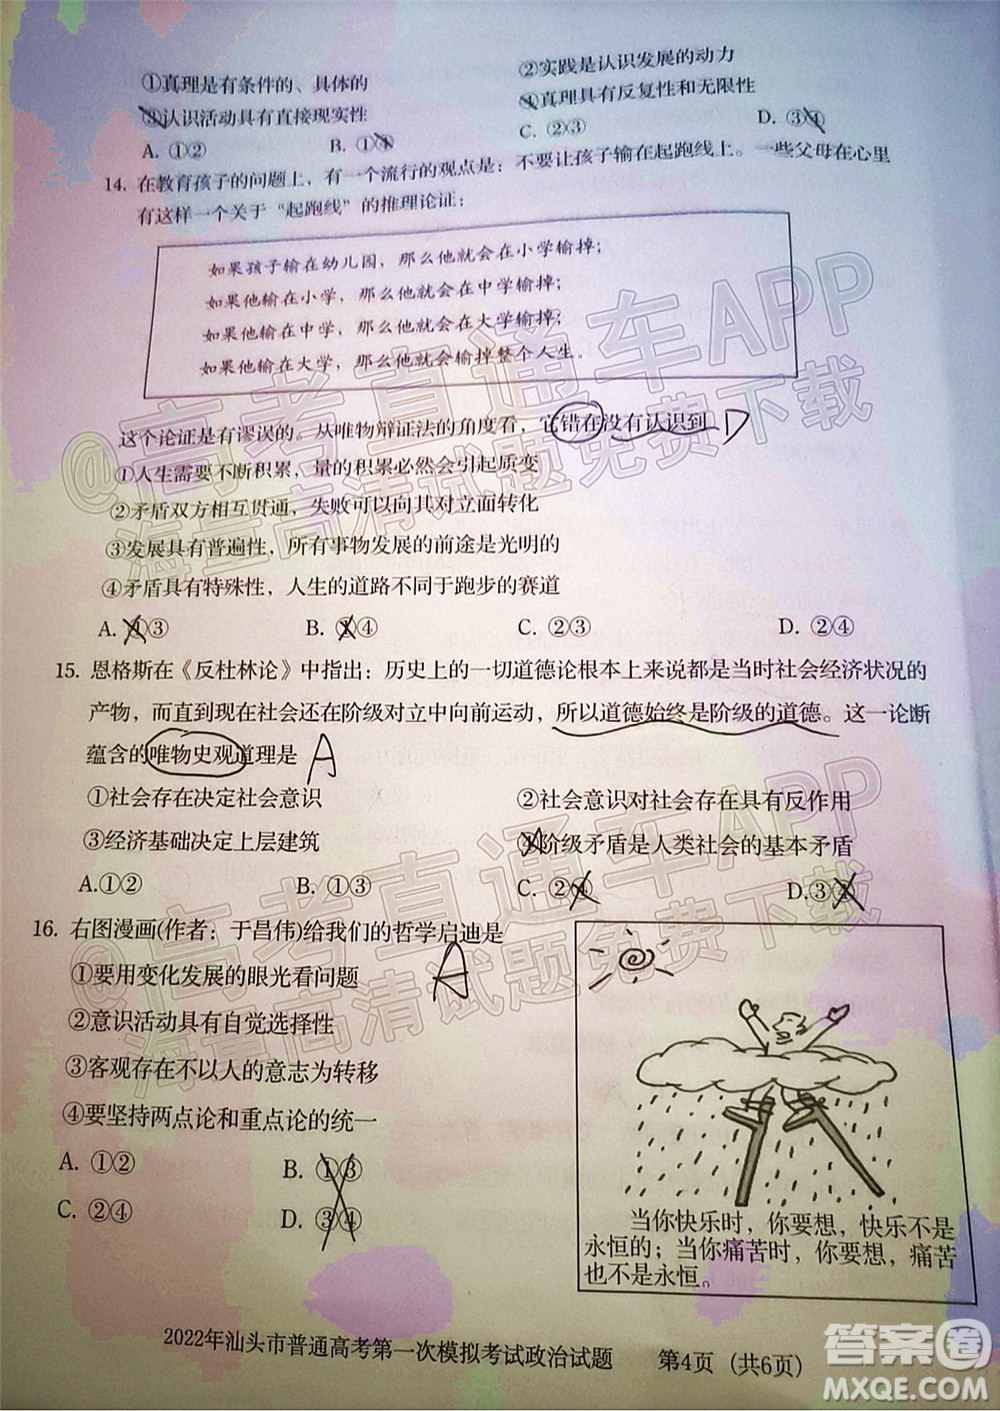 ①真理是有条件的、具体的
②实践是认识发展的动力
③认识活动具有直接现实性
④真理具有反复性和无限性
A. ①② B. ①④ C. ②③ D. ③④
14. 在教育孩子的问题上，有一个流行的观点是：不要让孩子输在起跑线上。一些父母在心里
有这样一个关于“起跑线”的推理论证：
如果孩子输在幼儿园，那么他就会在小学输掉；
如果他输在小学，那么他就会在中学输掉；
如果他输在中学，那么他就会在大学输掉；
如果他输在大学，那么他就会输掉整个人生。
这个论证是有谬误的。从唯物辩证法的角度看，它错在没有认识到 D
①人生需要不断积累，量的积累必然会引起质变
②矛盾双方相互贯通，失败可以向其对立面转化
③发展具有普遍性，所有事物发展的前途是光明的
④矛盾具有特殊性，人生的道路不同于跑步的赛道
A. ①③ B. ①④ C. ②③ D. ②④
15. 恩格斯在《反杜林论》中指出：历史上的一切道德论根本上来说都是当时社会经济状况的
产物，而直到现在社会还在阶级对立中向前运动，所以道德始终是阶级的道德。这一论断
蕴含的唯物史观道理是 A
①社会存在决定社会意识
②社会意识对社会存在具有反作用
③经济基础决定上层建筑
④阶级矛盾是人类社会的基本矛盾
A.①② B. ①③ C. ②④ D.③④
16. 右图漫画(作者：于昌伟)给我们的哲学启迪是 A
①要用变化发展的眼光看问题
②意识活动具有自觉选择性
③客观存在不以人的意志为转移
④要坚持两点论和重点论的统一
A. ①② B. ①③
C. ②④ D. ③④
当你快乐时，你要想，快乐不是
永恒的；当你痛苦时，你要想，痛苦
也不是永恒。
2022年汕头市普通高考第一次模拟考试政治试题 第4页（共6页）
@高考直通车APP
海量高清试题免费下载
@高考直通车APP
海量高清试题免费下载
答案圈
MXQE.COM